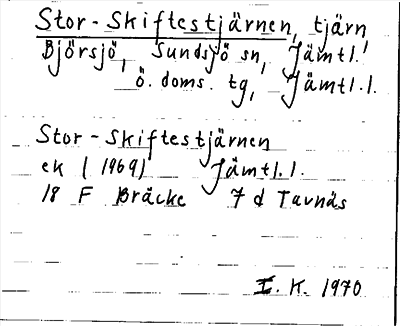 Stor-Skiftestjärnen, tjärn
Björsjö, Sundsjö sn, Jämtl.
ö. doms. tg, Jämtl.l.
Stor-Skiftestjärnen
ek (1969) Jämtl.l.
18 F Bräcke 7 d Tavnäs
I. K. 1970